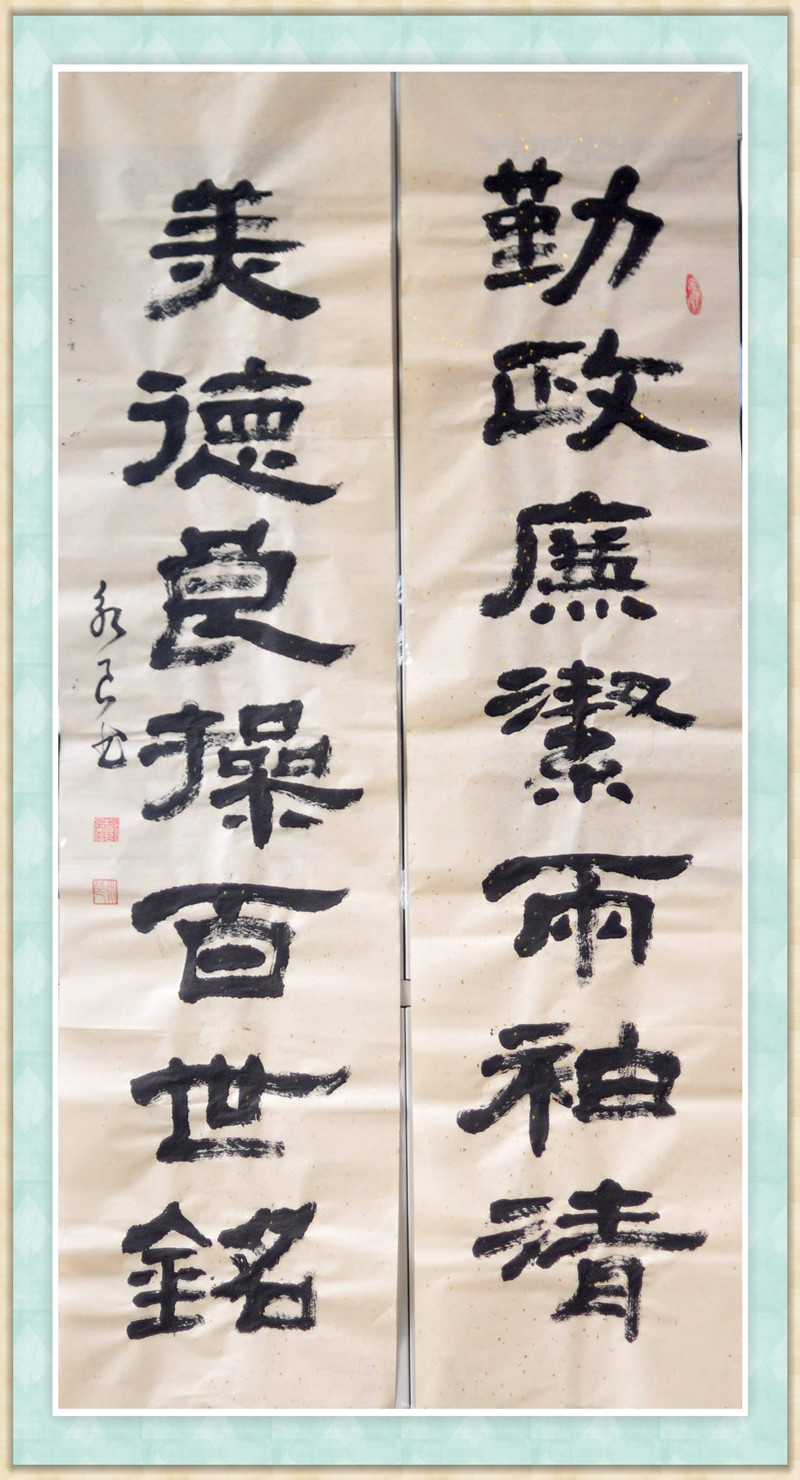 勤政廉潔兩袖清
美德良操百世銘
永良书